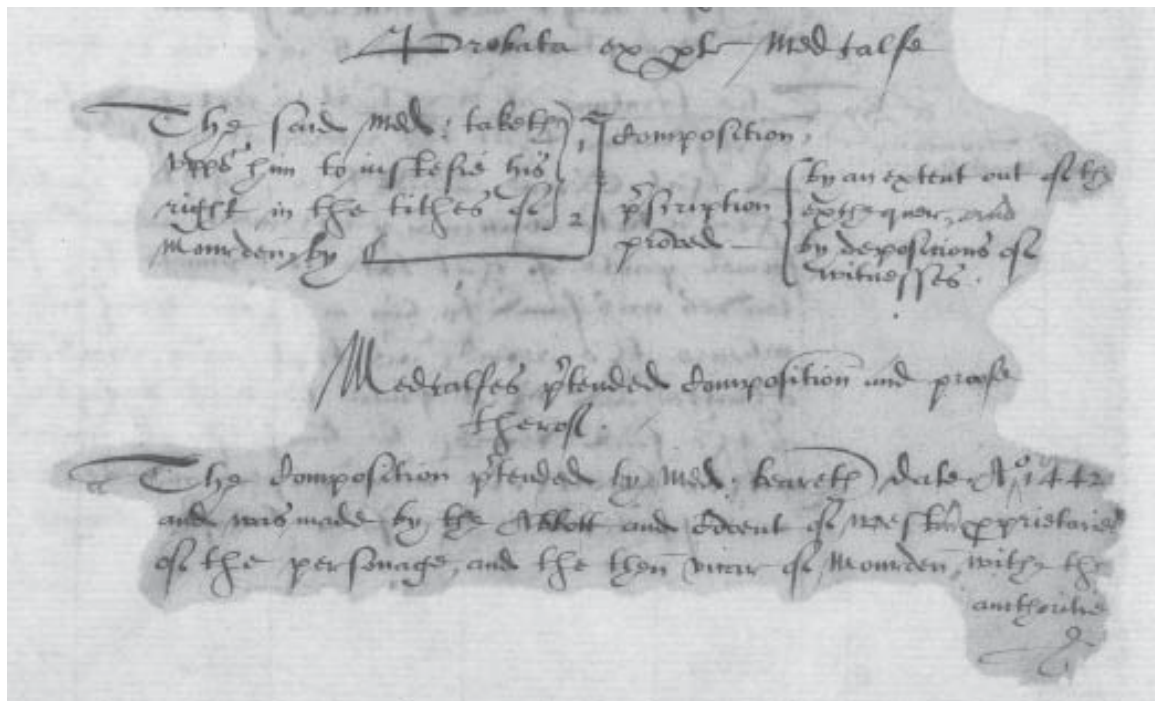 Probata ex pte Medcalfe
The said Med: taketh 1 Composition.
vppō him to iustefie his
right in the tithes of 2 p̄scription
Mourden, by proved
by an extent out of the
exchequer, and
by depositions of
witnesses.
Medcalfes p̄tended Composition and proofe
therof.
The Composition p̄tended by Med: beareth date Ao 1442
and was made by the Abbott and Covent of Westm̄ pprietaries
of the personage, and the then vicar of Mourden, with the
authoritie